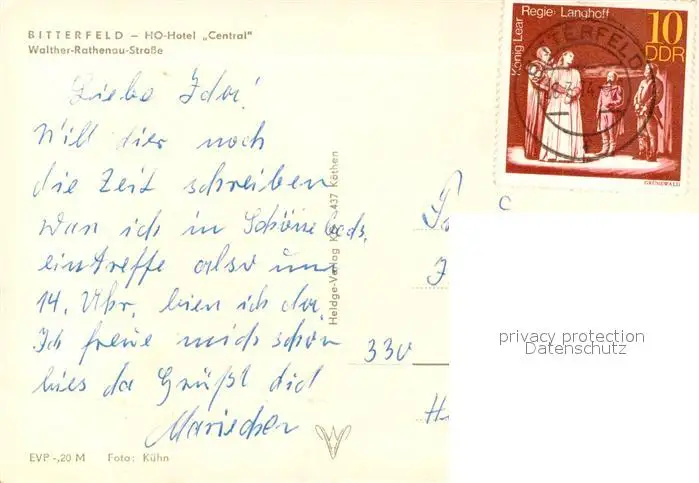 BITTERFELD – HO-Hotel „Central"
Walther-Rathenau-Straße
Liebe Ida!
Will dier noch
die Zeit schreiben
wan ich in Schönebeds.
eintreffe also um
14. Uhr, bien ich da,
Ich freue mich schon
bies da Grüßt did
Mariechen
EVP -,20 M Foto: Kühn
Heldge-Verlag Köthen
König Lear Regie: Langhoff
10
DDR
BITTERFELD
GRÜNEWALD
330
privacy protection
Datenschutz